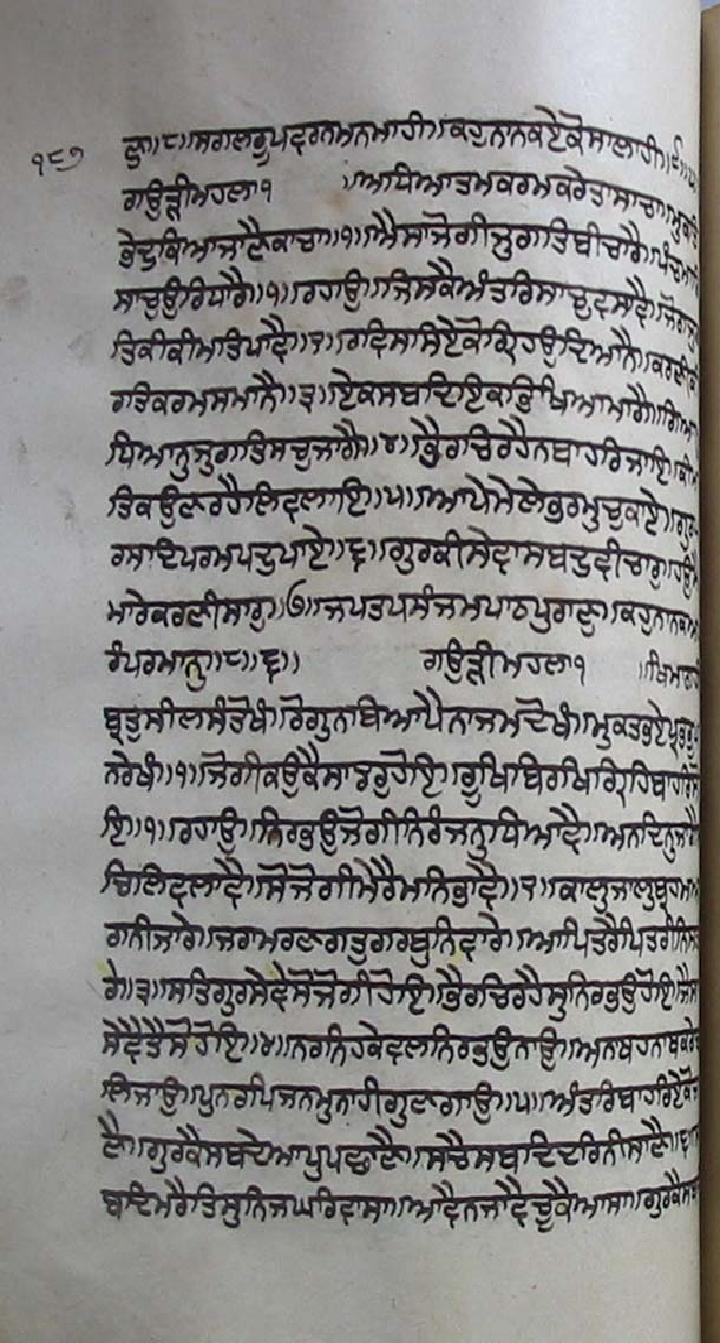 ੧੮੭
ਲੁ॥੮॥ਸਗਲਰੂਪਵਰਨਮਨਮਾਹੀ॥ਕਹੁਨਾਨਕਏਕੋਸਾਲਾਹੀ॥੯॥
ਗਉੜੀਮਹਲਾ੧ ॥ਅਧਿਆਤਮਕਰਮਕਰੇਤਾਸਾਚਾ॥ਮੁਕਤਿ
ਭੇਦੁਕਿਆਜਾਣੈਕਾਚਾ॥੧॥ਐਸਾਜੋਗੀਜੁਗਤਿਬੀਚਾਰੈ॥ਪੰਚਮਾਰਿ
ਸਾਚੁਉਰਿਧਾਰੈ॥੧॥ਰਹਾਉ॥ਜਿਸਕੈਅੰਤਰਿਸਾਚੁਵਸਾਵੈ॥ਜੋਗਜੁਗ
ਤਿਕੀਕੀਮਤਿਪਾਵੈ॥੨॥ਰਵਿਸਸਿਏਕੋਗ੍ਰਿਹਉਦਿਆਨੈ॥ਕਰਣੀਕੀ
ਰਤਿਕਰਮਸਮਾਨੈ॥੩॥ਏਕਸਬਦਿਇਕਭਿਖਿਆਮਾਗੈ॥ਗਿਆਨੁ
ਧਿਆਨੁਜੁਗਤਿਸਚੁਜਾਗੈ॥੪॥ਭੈਰਚਿਰਹੈਨਬਾਹਰਿਜਾਇ॥ਕੀਮ
ਤਿਕਉਣਰਹੈਲਿਵਲਾਇ॥੫॥ਆਪੇਮੇਲੇਭਰਮੁਚੁਕਾਏ॥ਗੁਰਪ
ਰਸਾਦਿਪਰਮਪਦੁਪਾਏ॥੬॥ਗੁਰਕੀਸੇਵਾਸਬਦੁਵੀਚਾਰੁ॥ਹਉਮੈ
ਮਾਰੇਕਰਣੀਸਾਰੁ॥੭॥ਜਪਤਪਸੰਜਮਪਾਠਪੁਰਾਣੁ॥ਕਹੁਨਾਨਕਅਪ
ਰੰਪਰਮਾਨੁ॥੮॥੬॥ ਗਉੜੀਮਹਲਾ੧ ॥ਖਿਮਾਗਹੀ
ਬ੍ਰਤੁਸੀਲਸੰਤੋਖੰ॥ਰੋਗੁਨਾਬਿਆਪੈਨਾਜਮਦੋਖੰ॥ਮੁਕਤਭਏਪ੍ਰਭਰੂਪ
ਨਰੇਖੰ॥੧॥ਜੋਗੀਕਉਕੈਸਾਡਰੁਹੋਇ॥ਰੂਖਿਬਿਰਖਿਗ੍ਰਿਹਿਬਾਹਰਿਸੋ
ਇ॥੧॥ਰਹਾਉ॥ਨਿਰਭਉਜੋਗੀਨਿਰੰਜਨੁਧਿਆਵੈ॥ਅਨਦਿਨੁਜਾਗੈਸ
ਚਿਲਿਵਲਾਵੈ॥ਸੋਜੋਗੀਮੇਰੈਮਨਿਭਾਵੈ॥੨॥ਕਾਲੁਜਾਲੁਬ੍ਰਹਮਅ
ਗਨੀਜਾਰੇ॥ਜਰਾਮਰਣਗਤੁਗਰਬੁਨਿਵਾਰੇ॥ਆਪਿਤਰੈਪਿਤਰੀਨਿਸਤਾ
ਰੇ॥੩॥ਸਤਿਗੁਰਸੇਵੇਸੋਜੋਗੀਹੋਇ॥ਭੈਰਚਿਰਹੈਸੁਨਿਰਭਉਹੋਇ॥ਜੈਸਾ
ਸੇਵੈਤੈਸੋਹੋਇ॥੪॥ਨਰਨਿਹਕੇਵਲਨਿਰਭਉਨਾਉ॥ਅਨਾਥਹਨਾਥਕਰੇਬ
ਲਿਜਾਉ॥ਪੁਨਰਪਿਜਨਮੁਨਾਹੀਗੁਣਗਾਉ॥੫॥ਅੰਤਰਿਬਾਹਰਿਏਕੋਜਾ
ਣੈ॥ਗੁਰਕੈਸਬਦੇਆਪੁਪਛਾਣੈ॥ਸਾਚੈਸਬਦਿਦਰਿਨੀਸਾਣੈ॥੬॥ਸ
ਬਦਿਮਰੈਤਿਸੁਨਿਜਘਰਿਵਾਸਾ॥ਆਵੈਨਜਾਵੈਚੂਕੈਆਸਾ॥ਗੁਰਕੈਸਬ